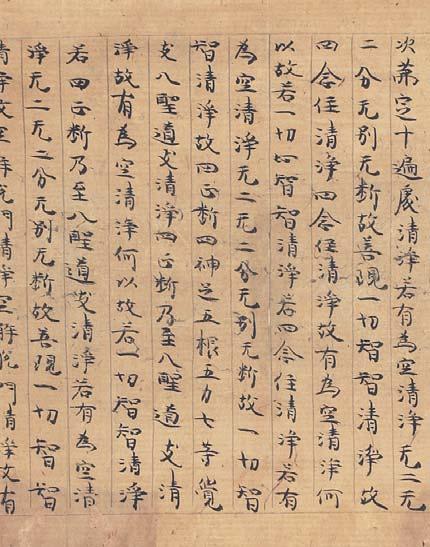 次第定十遍處清淨若有為空清淨无二无
二分无別无斷故善現一切智智清淨故
四念住清淨四念住清淨故有為空清淨何
以故若一切智智清淨若四念住清淨若有
為空清淨无二无二分无別无斷故一切智
智清淨故四正斷四神足五根五力七等覺
支八聖道支清淨四正斷乃至八聖道支清
淨故有為空清淨何以故若一切智智清淨
若四正斷乃至八聖道支清淨若有為空清
淨无二无二分无別无斷故善現一切智智
清淨故空解脫門清淨空解脫門清淨故有